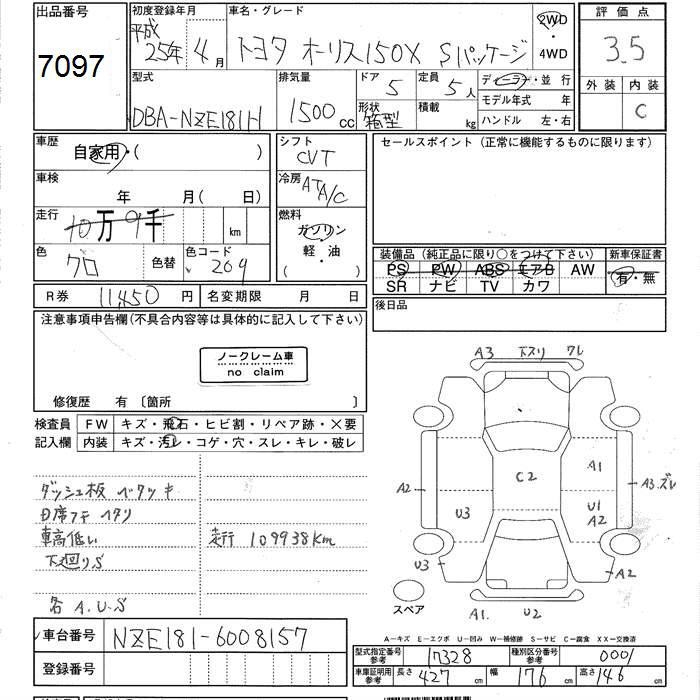 出品番号 初度登録年月 車名・グレード 評価点
7097 平成25年4月 トヨタ オーリス150X Sパッケージ 2WD・4WD 3.5
型式 排気量 ドア 定員 ディーラー・並行 外装 内装
DBA-NZE181H 1500cc 5 5人 モデル年式 年 C
形状 箱型 積載 kg ハンドル 左・右
車歴 自家用・( ) シフト CVT セールスポイント (正常に機能するものに限ります)
車検 年 月(日) 冷房 AT A/C
走行 10万9千 km 燃料 ガソリン 軽・油 ( )
色 クロ 色替 色コード 209 装備品 (純正品に限り○をつけて下さい) 新車保証書
PS PW ABS エアB AW 有・無
SR ナビ TV カワ
R券 11450円 名変期限 月 日 後日品
注意事項申告欄(不具合内容等は具体的に記入して下さい)
ノークレーム車
no claim
修復歴 有 〔箇所 〕
検査員 FW キズ・飛石・ヒビ割・リペア跡・×要
記入欄 内装 キズ・汚レ・コゲ・穴・スレ・キレ・破レ
ダッシュ板 ベタツキ
車高低い 走行 109938km
下廻りS
各 A.U.S
A3 下スリ ワレ
A1
A2 C2 A3.ズレ
U3 U1
A2
U3 A2
スペア A1. U2
A-キズ E-エクボ U-凹み W-補修跡 S-サビ C-腐食 XX-交換済
車台番号 NZE181-6008157
登録番号
型式指定番号 参考 17328 種別区分番号 参考 0001
車庫証明用 参考 長さ 427cm 幅 176cm 高さ 146cm